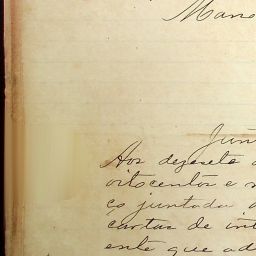 Mano
Jun
Aos dezesete d
oitocentos e n
ço juntada a
cartas de int
ente que ad